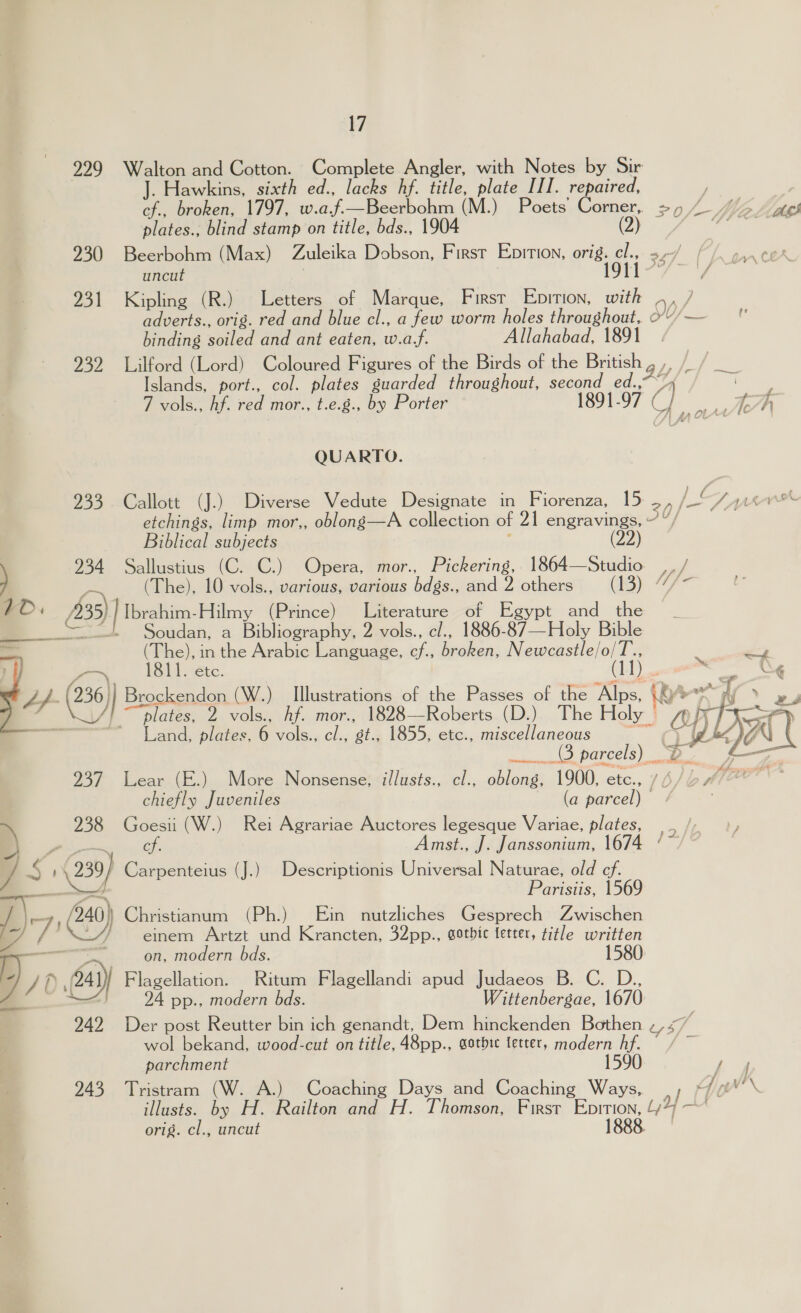 17
229 Walton and Cotton. Complete Angler, with Notes by Sir
J. Hawkins, sixth ed., lacks hf. title, plate III. repaired,
cf., broken, 1797, w.a.f.—Beerbohm (M.) Poets' Corner,
plates., blind stamp on title, bds., 1904 (2)
230 Beerbohm (Max) Zuleika Dobson, First Edition, orig. cl.,
uncut 1911
231 Kipling (R.) Letters of Marque, First Edition, with
adverts., orig. red and blue cl., a few worm holes throughout,
binding soiled and ant eaten, w.a.f. Allahabad, 1891
232 Lilford (Lord) Coloured Figures of the Birds of the British
Islands, port., col. plates guarded throughout, second ed.,
7 vols., hf. red mor., t.e.g., by Porter 1891-97
QUARTO.
233 Callott (J.) Diverse Vedute Designate in Fiorenza, 15
etchings, limp mor,, oblong—A collection of 21 engravings,
Biblical subjects (22)
234 Sallustius (C. C.) Opera, mor., Pickering, 1864—Studio
(The), 10 vols., various, various bdgs., and 2 others (13)
235 Ibrahim-Hilmy (Prince) Literature of Egypt and the
Soudan, a Bibliography, 2 vols., cl., 1886-87—Holy Bible
(The), in the Arabic Language, cf., broken, Newcastle/o/T.,
1811, etc. (11)
236 Brockendon (W.) Illustrations of the Passes of the Alps,
plates, 2 vols., hf. mor., 1828—Roberts (D.) The Holy
Land, plates, 6 vols., cl., gt., 1855, etc., miscellaneous
(3 parcels)
237 Lear (E.) More Nonsense, illusts., cl., oblong, 1900, etc.,
chiefly Juveniles (a parcel)
238 Goesii (W.) Rei Agrariae Auctores legesque Variae, plates,
cf. Amst., J. Janssonium, 1674
239 Carpenteius (J.) Descriptionis Universal Naturae, old cf.
Parisiis, 1569
240 Christianum (Ph.) Ein nutzliches Gesprech Zwischen
einem Artzt und Krancten, 32pp., gothic letter, title written
on, modern bds. 1580
241 Flagellation. Ritum Flagellandi apud Judaeos B. C. D.,
24 pp., modern bds. Wittenbergae, 1670
242 Der post Reutter bin ich genandt, Dem hinckenden Bothen
wol bekand, wood-cut on title, 48pp., gothic letter, modern hf.
parchment 1590
243 Tristram (W. A.) Coaching Days and Coaching Ways,
illusts. by H. Railton and H. Thomson, First Edition,
orig. cl., uncut 1888.